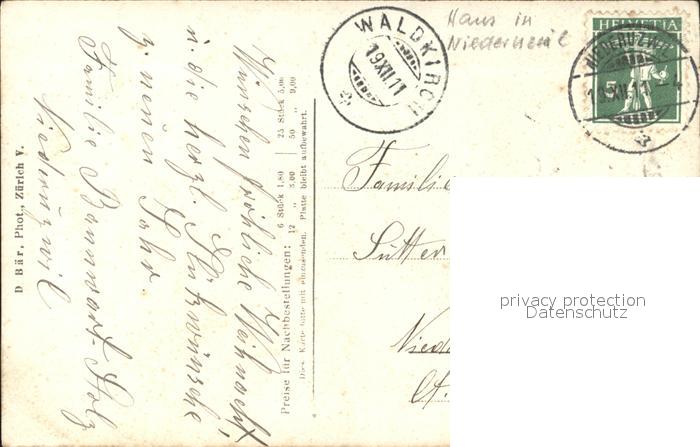 Haus in
Niederneul
HELVETIA
5
NIEDERUZWIL
19.XII.11
WALDKIRCH
19.XII.11
Wünschen fröhliche Weihnacht
u. die herzl. Glückwünsche
z. neuen Jahr.
Familie Bannwart-Holz
Niederuzwil
Preise für Nachbestellungen: 6 Stück 1,80 | 25 Stück 5,00
12 „ 3,00 | 50 „ 9,00
Diese Karte bitte mit einzusenden. Platte bleibt aufbewahrt.
D Bär, Phot., Zürich V.
Familie
Sutter
Nied
Ct.
privacy protection
Datenschutz